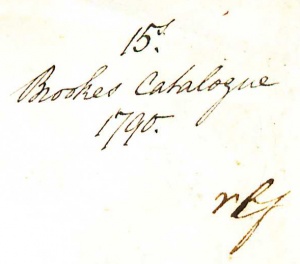 15s.
Brookes Catalogue
1790.